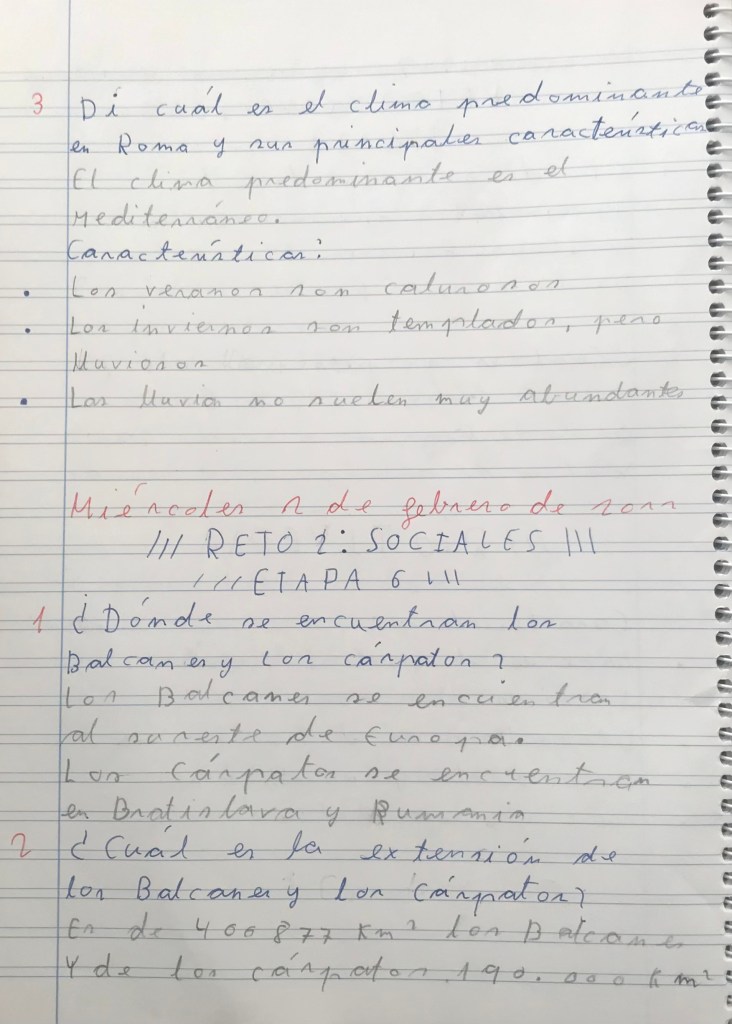 3 Di cuál es el clima predominante
en Roma y sus principales características
El clima predominante es el
Mediterráneo.
Características:
• Los veranos son calurosos
• Los inviernos son templados, pero
lluviosos
• Las lluvia no suelen muy abundantes
Miércoles 2 de febrero de 2022
/// RETO 2: SOCIALES |||
/// ETAPA 6 |||
1 ¿Dónde se encuentran los
Balcanes y los cárpatos?
Los Balcanes se encuentran
al sureste de Europa.
Los Cárpatos se encuentran
en Bratislava y Rumania
2 ¿Cuál es la extensión de
los Balcanes y los Cárpatos?
Es de 466877 Km² los Balcanes
Y de los cárpatos 190.000 Km²